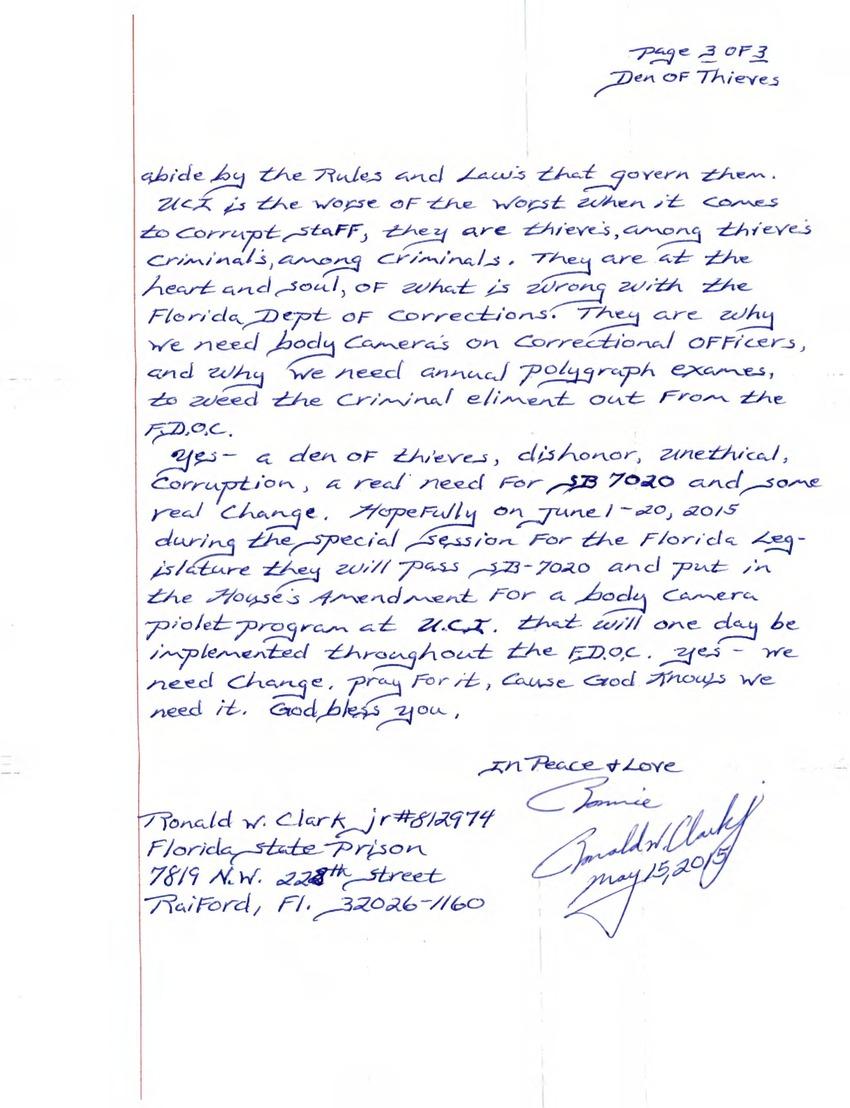 Page 3 OF 3
Den OF Thieves
abide by the Rules and Law's that govern them.
UCI is the worse OF the worst when it comes
to corrupt staFF, they are thieve's, among thieve's
Criminal's, among Criminals. They are at the
heart and soul, OF what is wrong with the
Florida Dept OF Corrections. They are why
we need body Camera's on Correctional OFFicers,
and why we need annual polygraph exames,
to weed the Criminal eliment out From the
F.D.O.C.
Yes- a den OF thieves, dishonor, unethical,
Corruption, a real need For SB 7020 and some
real Change. HopeFully on June 1-20, 2015
during the special session For the Florida Leg-
islature they will pass SB-7020 and put in
the House's Amendment For a body Camera
piolet program at U.C.I. that will one day be
implemented throughout the F.D.O.C. Yes- we
need Change, pray For it, Cause God Knows we
need it. God bless you,
In Peace & Love
Ronnie
Ronald W. Clark jr #812974
Ronald W. Clark jr
Florida State Prison
May 15, 2015
7819 N.W. 228th Street
RaiFord, Fl. 32026-1160